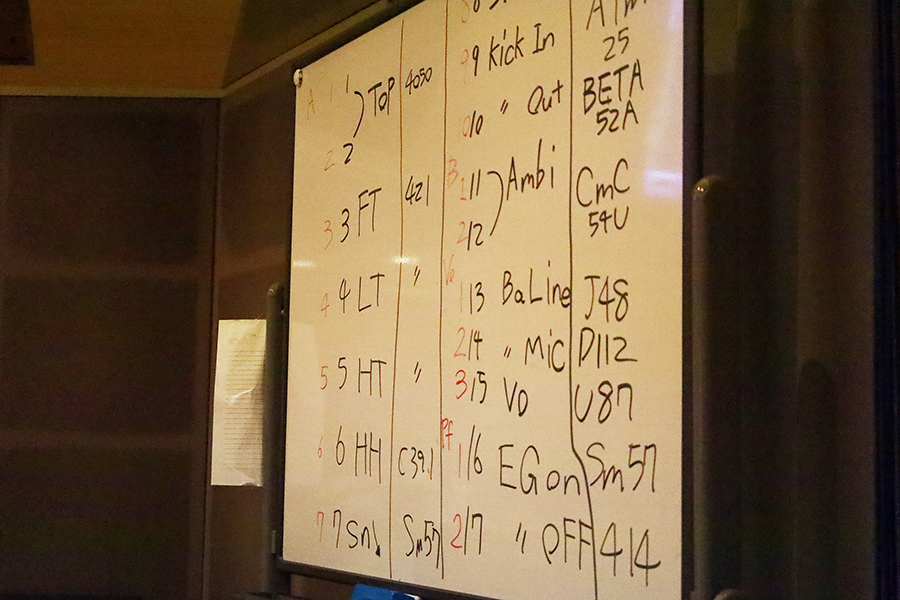 A 1 1 TOP 4050
2 2
3 3 FT 421
4 4 LT "
5 5 HT "
6 6 HH C391
7 7 Sn↓ Sm57
9 9 Kick In ATM 25
0 10 " Out BETA 52A
B 1 11 Ambi CMC 54U
2 12
Vo 1 13 Ba Line J48
2 14 " Mic D112
3 15 Vo U87
Pf 1 16 EG on Sm57
2 17 " OFF 414